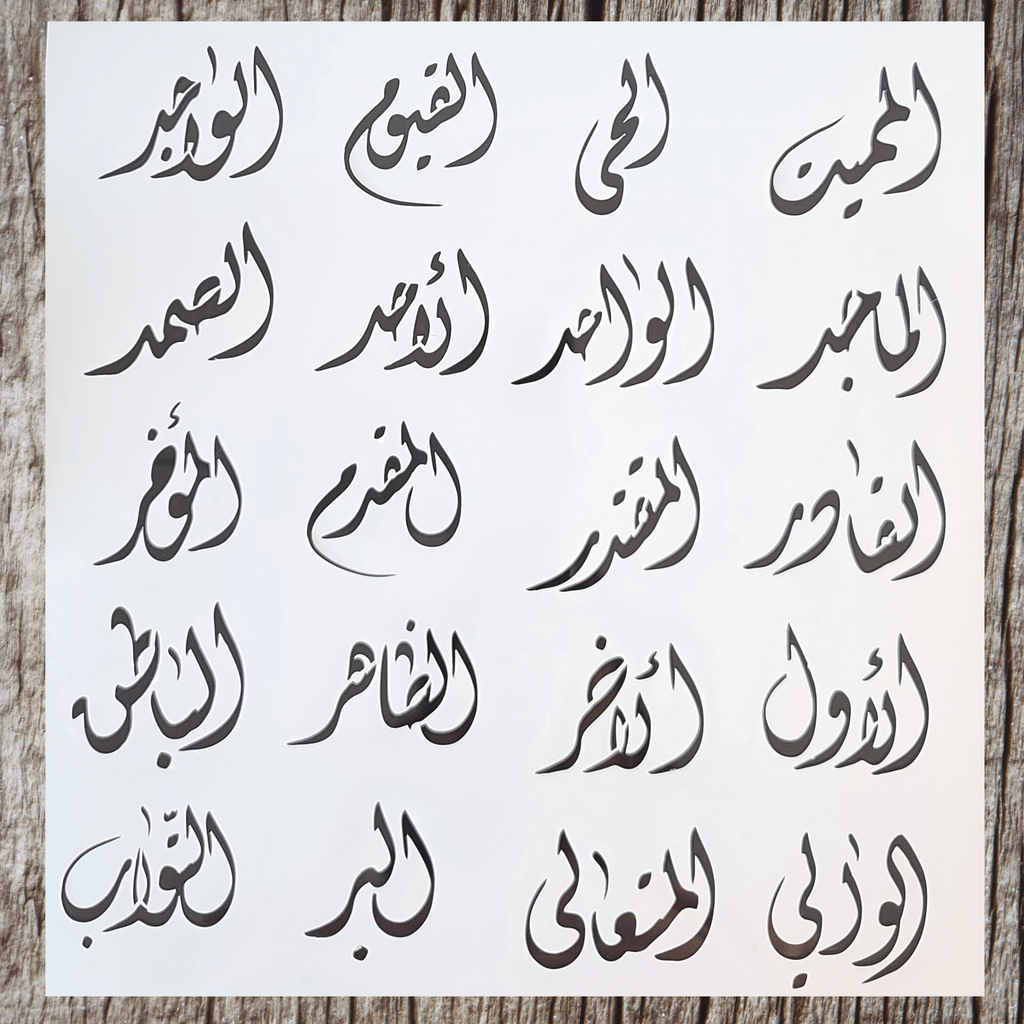 المميت الحى القيوم الواجد
الماجد الواحد الأحد الصمد
القادر المقتدر المقدم المؤخر
الأول الأخر الظاهر الباطن
الوالي المتعالى البر التّواب